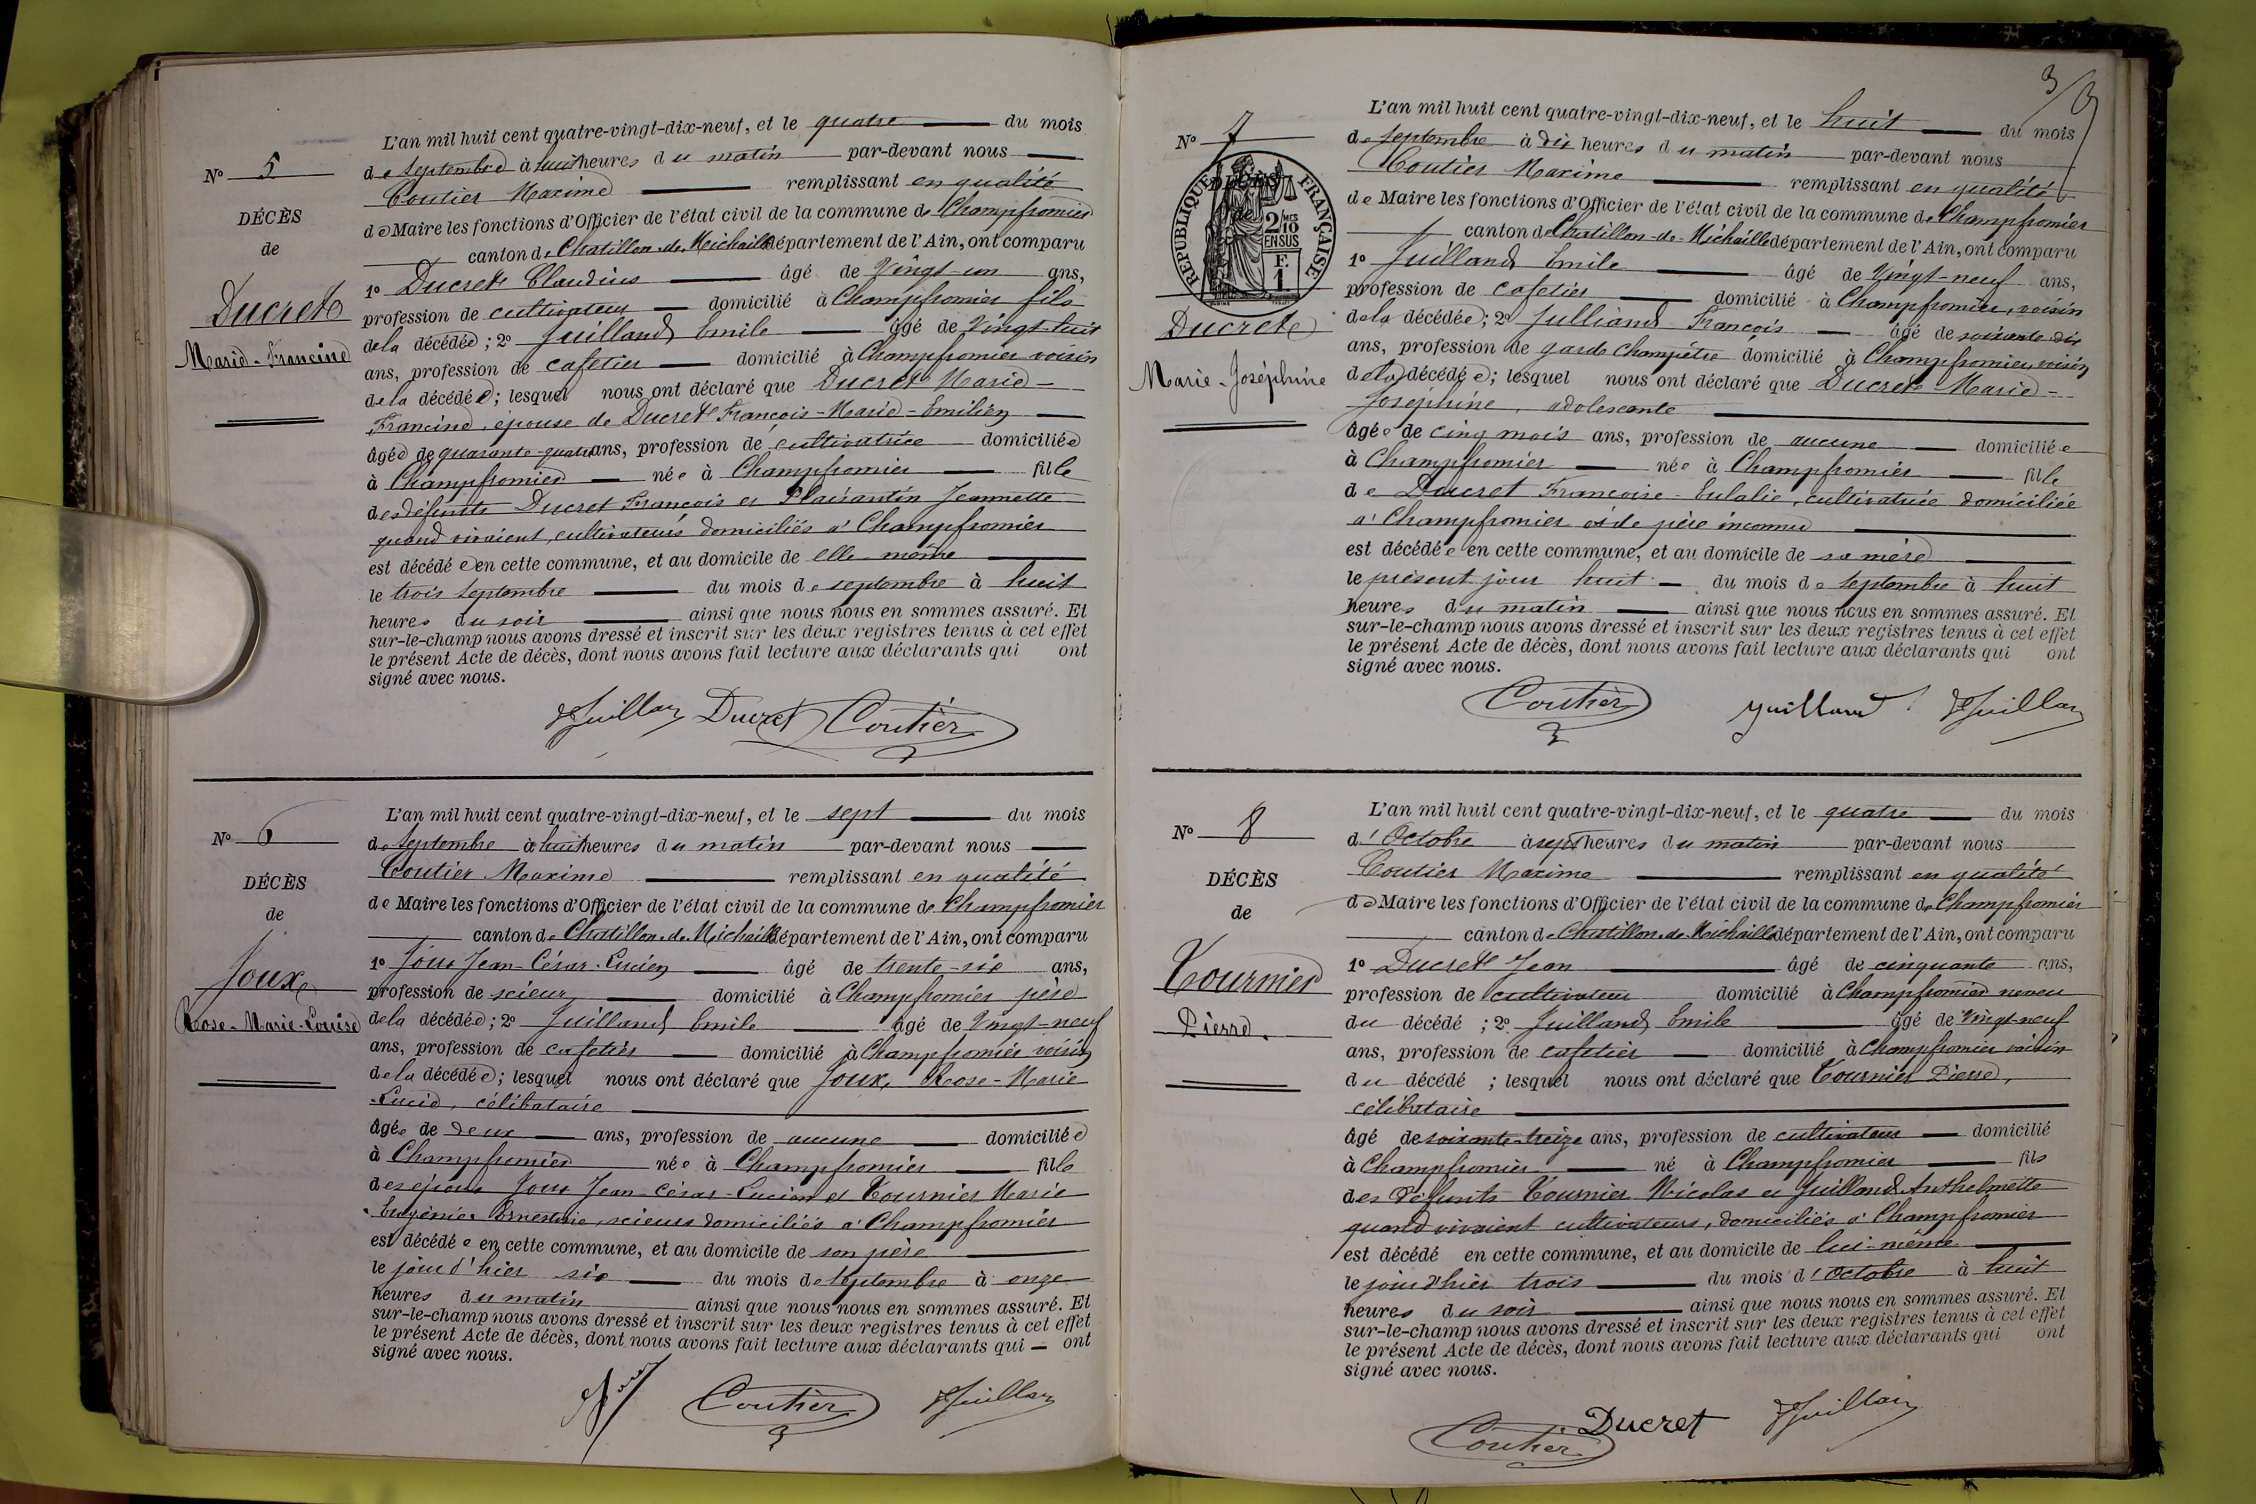 N° 5
DÉCÈS
de
Ducret
Marie-Francine
L'an mil huit cent quatre-vingt-dix-neuf, et le quatre du mois
de septembre à huit heures du matin par-devant nous
Coutier Maxime remplissant en qualité
de Maire les fonctions d'Officier de l'état civil de la commune de Champfromier
canton de Chatillon-de-Michaille département de l'Ain, ont comparu
1° Ducret Claudius âgé de vingt-un ans,
profession de cultivateur domicilié à Champfromier fils
de la décédée; 2° Juilland Emile âgé de vingt-huit
ans, profession de cafetier domicilié à Champfromier voisin
de la décédée; lesquel nous ont déclaré que Ducret Marie-
Francine, épouse de Ducret François-Marie-Emilien
âgée de quarante-quatre ans, profession de cultivatrice domiciliée
à Champfromier née à Champfromier fille
des défunts Ducret François et Plaisantin Jeannette
quand vivaient, cultivateurs domiciliés à Champfromier
est décédée en cette commune, et au domicile de elle-même
le trois septembre du mois de septembre à huit
heures du soir ainsi que nous nous en sommes assuré. Et
sur-le-champ nous avons dressé et inscrit sur les deux registres tenus à cet effet
le présent Acte de décès, dont nous avons fait lecture aux déclarants qui ont
signé avec nous.
Juillan Ducret Coutier
N° 6
DÉCÈS
de
Joux
Rose-Marie-Louise
L'an mil huit cent quatre-vingt-dix-neuf, et le sept du mois
de septembre à huit heures du matin par-devant nous
Coutier Maxime remplissant en qualité
de Maire les fonctions d'Officier de l'état civil de la commune de Champfromier
canton de Chatillon-de-Michaille département de l'Ain, ont comparu
1° Joux Jean-César-Lucien âgé de trente-six ans,
profession de scieur domicilié à Champfromier père
de la décédée; 2° Juilland Emile âgé de vingt-neuf
ans, profession de cafetier domicilié à Champfromier voisin
de la décédée; lesquel nous ont déclaré que Joux, Rose-Marie
Lucie, célibataire
âgée de deux ans, profession de aucune domiciliée
à Champfromier née à Champfromier fille
des époux Joux Jean-César-Lucien et Tournier Marie
Eugénie Ernestine, scieurs domiciliés à Champfromier
est décédée en cette commune, et au domicile de son père
le jour d'hier six du mois de septembre à onze
heures du matin ainsi que nous nous en sommes assuré. Et
sur-le-champ nous avons dressé et inscrit sur les deux registres tenus à cet effet
le présent Acte de décès, dont nous avons fait lecture aux déclarants qui ont
signé avec nous.
Joux Coutier Juillan
3
N° 7
RÉPUBLIQUE FRANÇAISE
DÉCÈS
de
2/10 MES
EN SUS
F.
1.
Ducret
Marie-Joséphine
L'an mil huit cent quatre-vingt-dix-neuf, et le huit du mois
de septembre à dix heures du matin par-devant nous
Coutier Maxime remplissant en qualité
de Maire les fonctions d'Officier de l'état civil de la commune de Champfromier
canton de Chatillon-de-Michaille département de l'Ain, ont comparu
1° Juilland Emile âgé de vingt-neuf ans,
profession de cafetier domicilié à Champfromier, voisin
de la décédée; 2° Julliand François âgé de soixante-dix
ans, profession de garde champêtre domicilié à Champfromier, voisin
de la décédée; lesquel nous ont déclaré que Ducret Marie-
Joséphine, adolescente
âgée de cinq mois ans, profession de aucune domiciliée
à Champfromier née à Champfromier fille
de Ducret Françoise-Eulalie, cultivatrice domiciliée
à Champfromier et de père inconnu
est décédée en cette commune, et au domicile de sa mère
le présent jour huit du mois de septembre à huit
heures du matin ainsi que nous nous en sommes assuré. Et
sur-le-champ nous avons dressé et inscrit sur les deux registres tenus à cet effet
le présent Acte de décès, dont nous avons fait lecture aux déclarants qui ont
signé avec nous.
Coutier Juilland Juillan
N° 8
DÉCÈS
de
Tournier
Pierre.
L'an mil huit cent quatre-vingt-dix-neuf, et le quatre du mois
d'Octobre à sept heures du matin par-devant nous
Coutier Maxime remplissant en qualité
de Maire les fonctions d'Officier de l'état civil de la commune de Champfromier
canton de Chatillon-de-Michaille département de l'Ain, ont comparu
1° Ducret Jean âgé de cinquante ans,
profession de cultivateur domicilié à Champfromier neveu
du décédé; 2° Juilland Emile âgé de vingt-neuf
ans, profession de cafetier domicilié à Champfromier voisin
du décédé; lesquel nous ont déclaré que Tournier Pierre,
célibataire
âgé de soixante-treize ans, profession de cultivateur domicilié
à Champfromier né à Champfromier fils
des défunts Tournier Nicolas et Juilland Anthelmette
quand vivaient cultivateurs, domiciliés à Champfromier
est décédé en cette commune, et au domicile de lui-même
le jour d'hier trois du mois d'Octobre à huit
heures du soir ainsi que nous nous en sommes assuré. Et
sur-le-champ nous avons dressé et inscrit sur les deux registres tenus à cet effet
le présent Acte de décès, dont nous avons fait lecture aux déclarants qui ont
signé avec nous.
Coutier Ducret Juillan